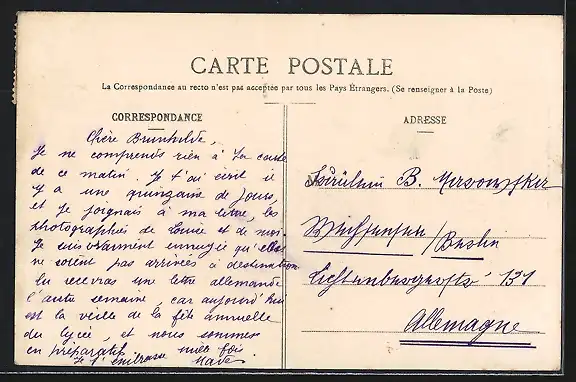 CARTE POSTALE
La Correspondance au recto n'est pas acceptée par tous les Pays Étrangers. (Se renseigner à la Poste)
CORRESPONDANCE
Chère Brunhilde,
Je ne comprends rien à ta carte
de ce matin. Je t'ai écrit il
y a une quinzaine de jours,
et je joignais à ma lettre, les
photographies de Louise et de moi.
Je suis vraiment ennuyée qu'elles
ne soient pas arrivées à destination
tu recevras une lettre allemande
l'autre semaine, car aujourd'hui
est la veille de la fête annuelle
du lycée, et nous sommes
en préparatifs
Je t'embrasse mille fois
ADRESSE
Fräulein B.
Weissensee/Berlin
131
Allemagne